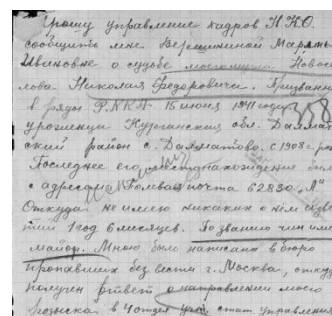 Прошу управление кадров Н.К.О.
сообщить мне Верещагиной Марьи
Ивановне о судьбе моего мужа Новосе
лова Николая Федоровича. Призванно
в ряды Р.К.К.А. 15 июня 1941 года
уроженца Курганская обл. Далмат
ский район с. Далматово. с 1908 г. рож
Последнее его местонахождение было
с адресом Полевая почта 62830 "Л"
Откуда не имею никаких о нём извес
тий 1 год 6 месяцев. По званию чин име
майор. Мною было написано в бюро
пропавших без вести г. Москва, откуд
получен ответ о направлении моего
розыска в 4 отдел упр. стат. управлени